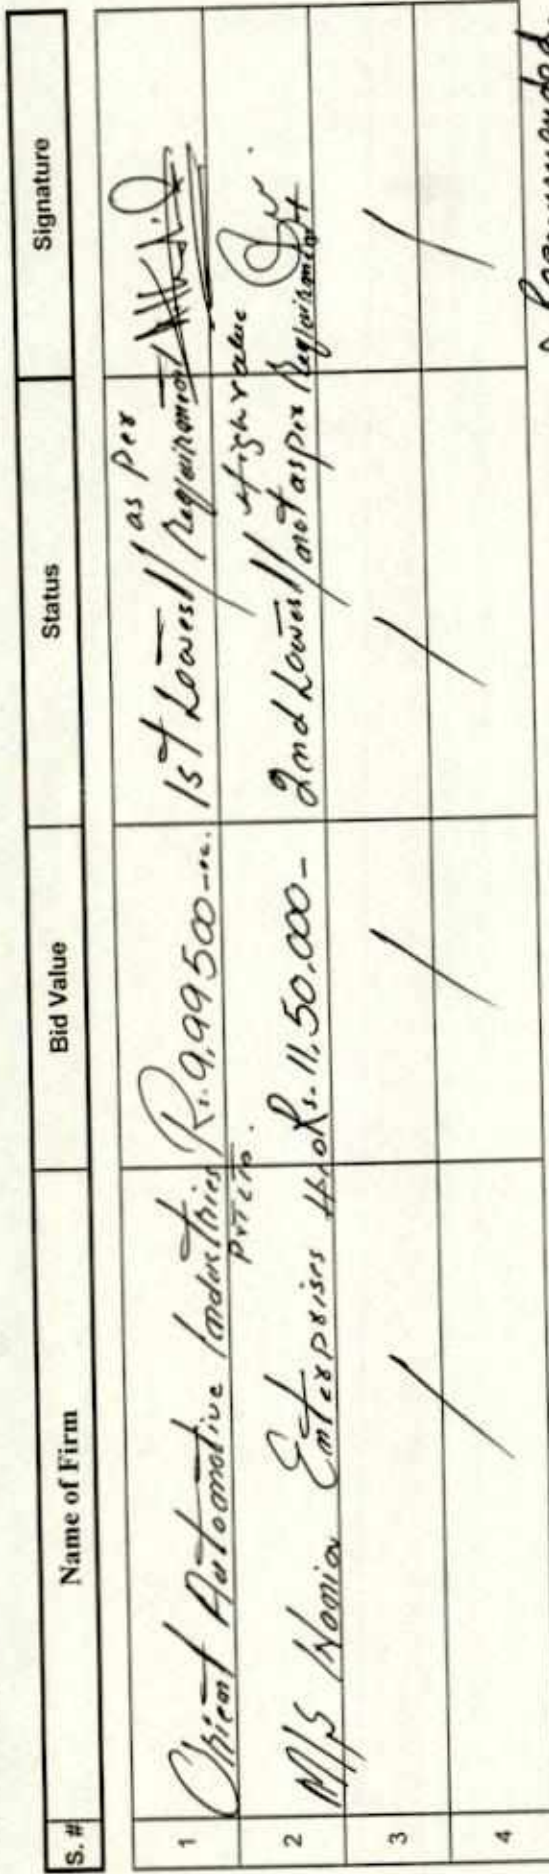 S. # Name of Firm Bid Value Status Signature
1 Orient Automotive Industries Pvt LTD. Rs. 9,99500 1st Lowest / as Per Requirement
2 M/S Enterprises Rs. 11,50,000- 2nd Lowest / High value not as per Requirement
3 /
4 /
Recommended